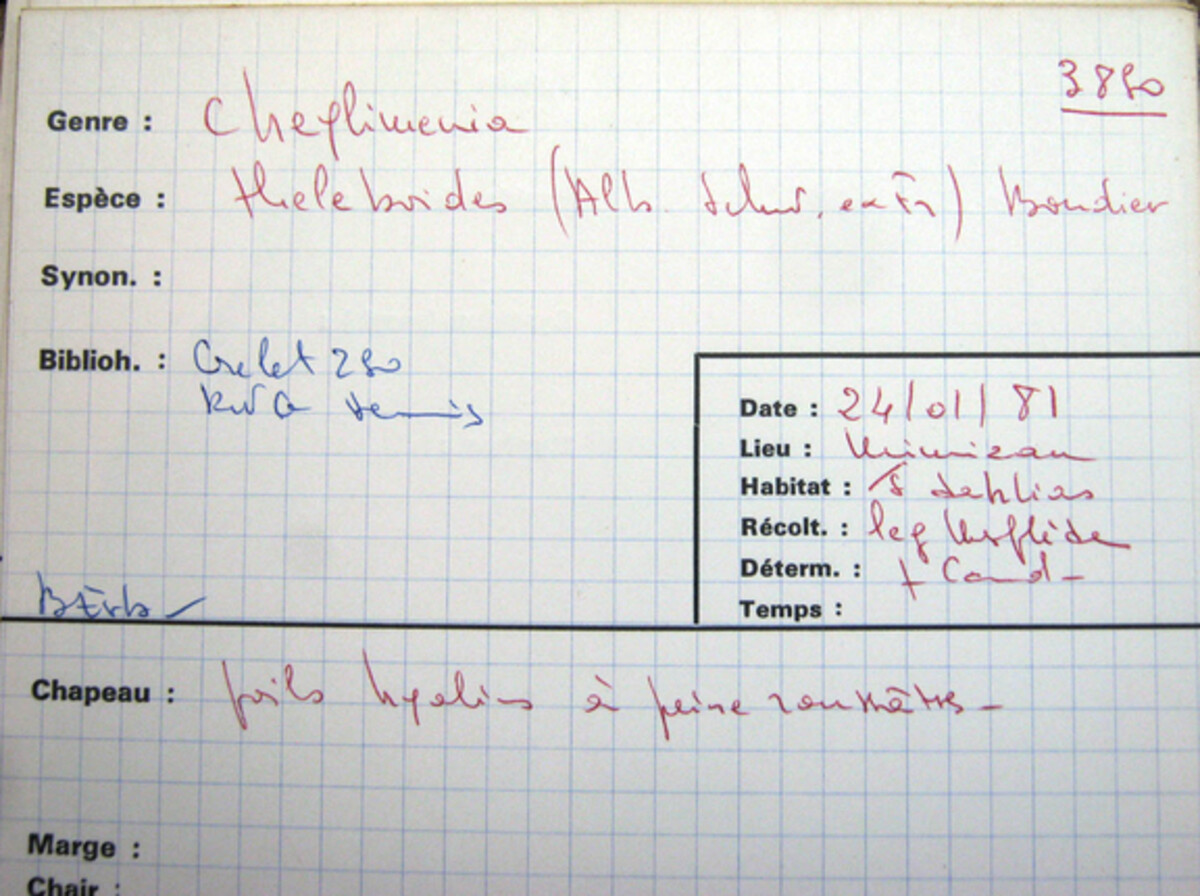 3850
Genre : Cheylimenia
Espèce : theleboides (Alb. Schw. ex Fr) Boudier
Synon. :
Biblioh. : Grelet 280
Date : 24/01/81
Lieu : Mimizan
Habitat : / S dahlias
Récolt. : leg
Déterm. : + Cand -
Temps :
Chapeau : poils hyalins à peine roussâtres -
Marge :
Chair :